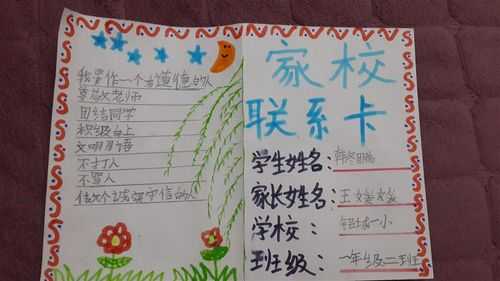 我要作一个有道德的人
尊敬老师
团结同学
积极向上
文明用语
不打人
不骂人
做个诚实守信的人
家校
联系卡
学生姓名：
家长姓名：王
学校：一小
班级：一年级二班